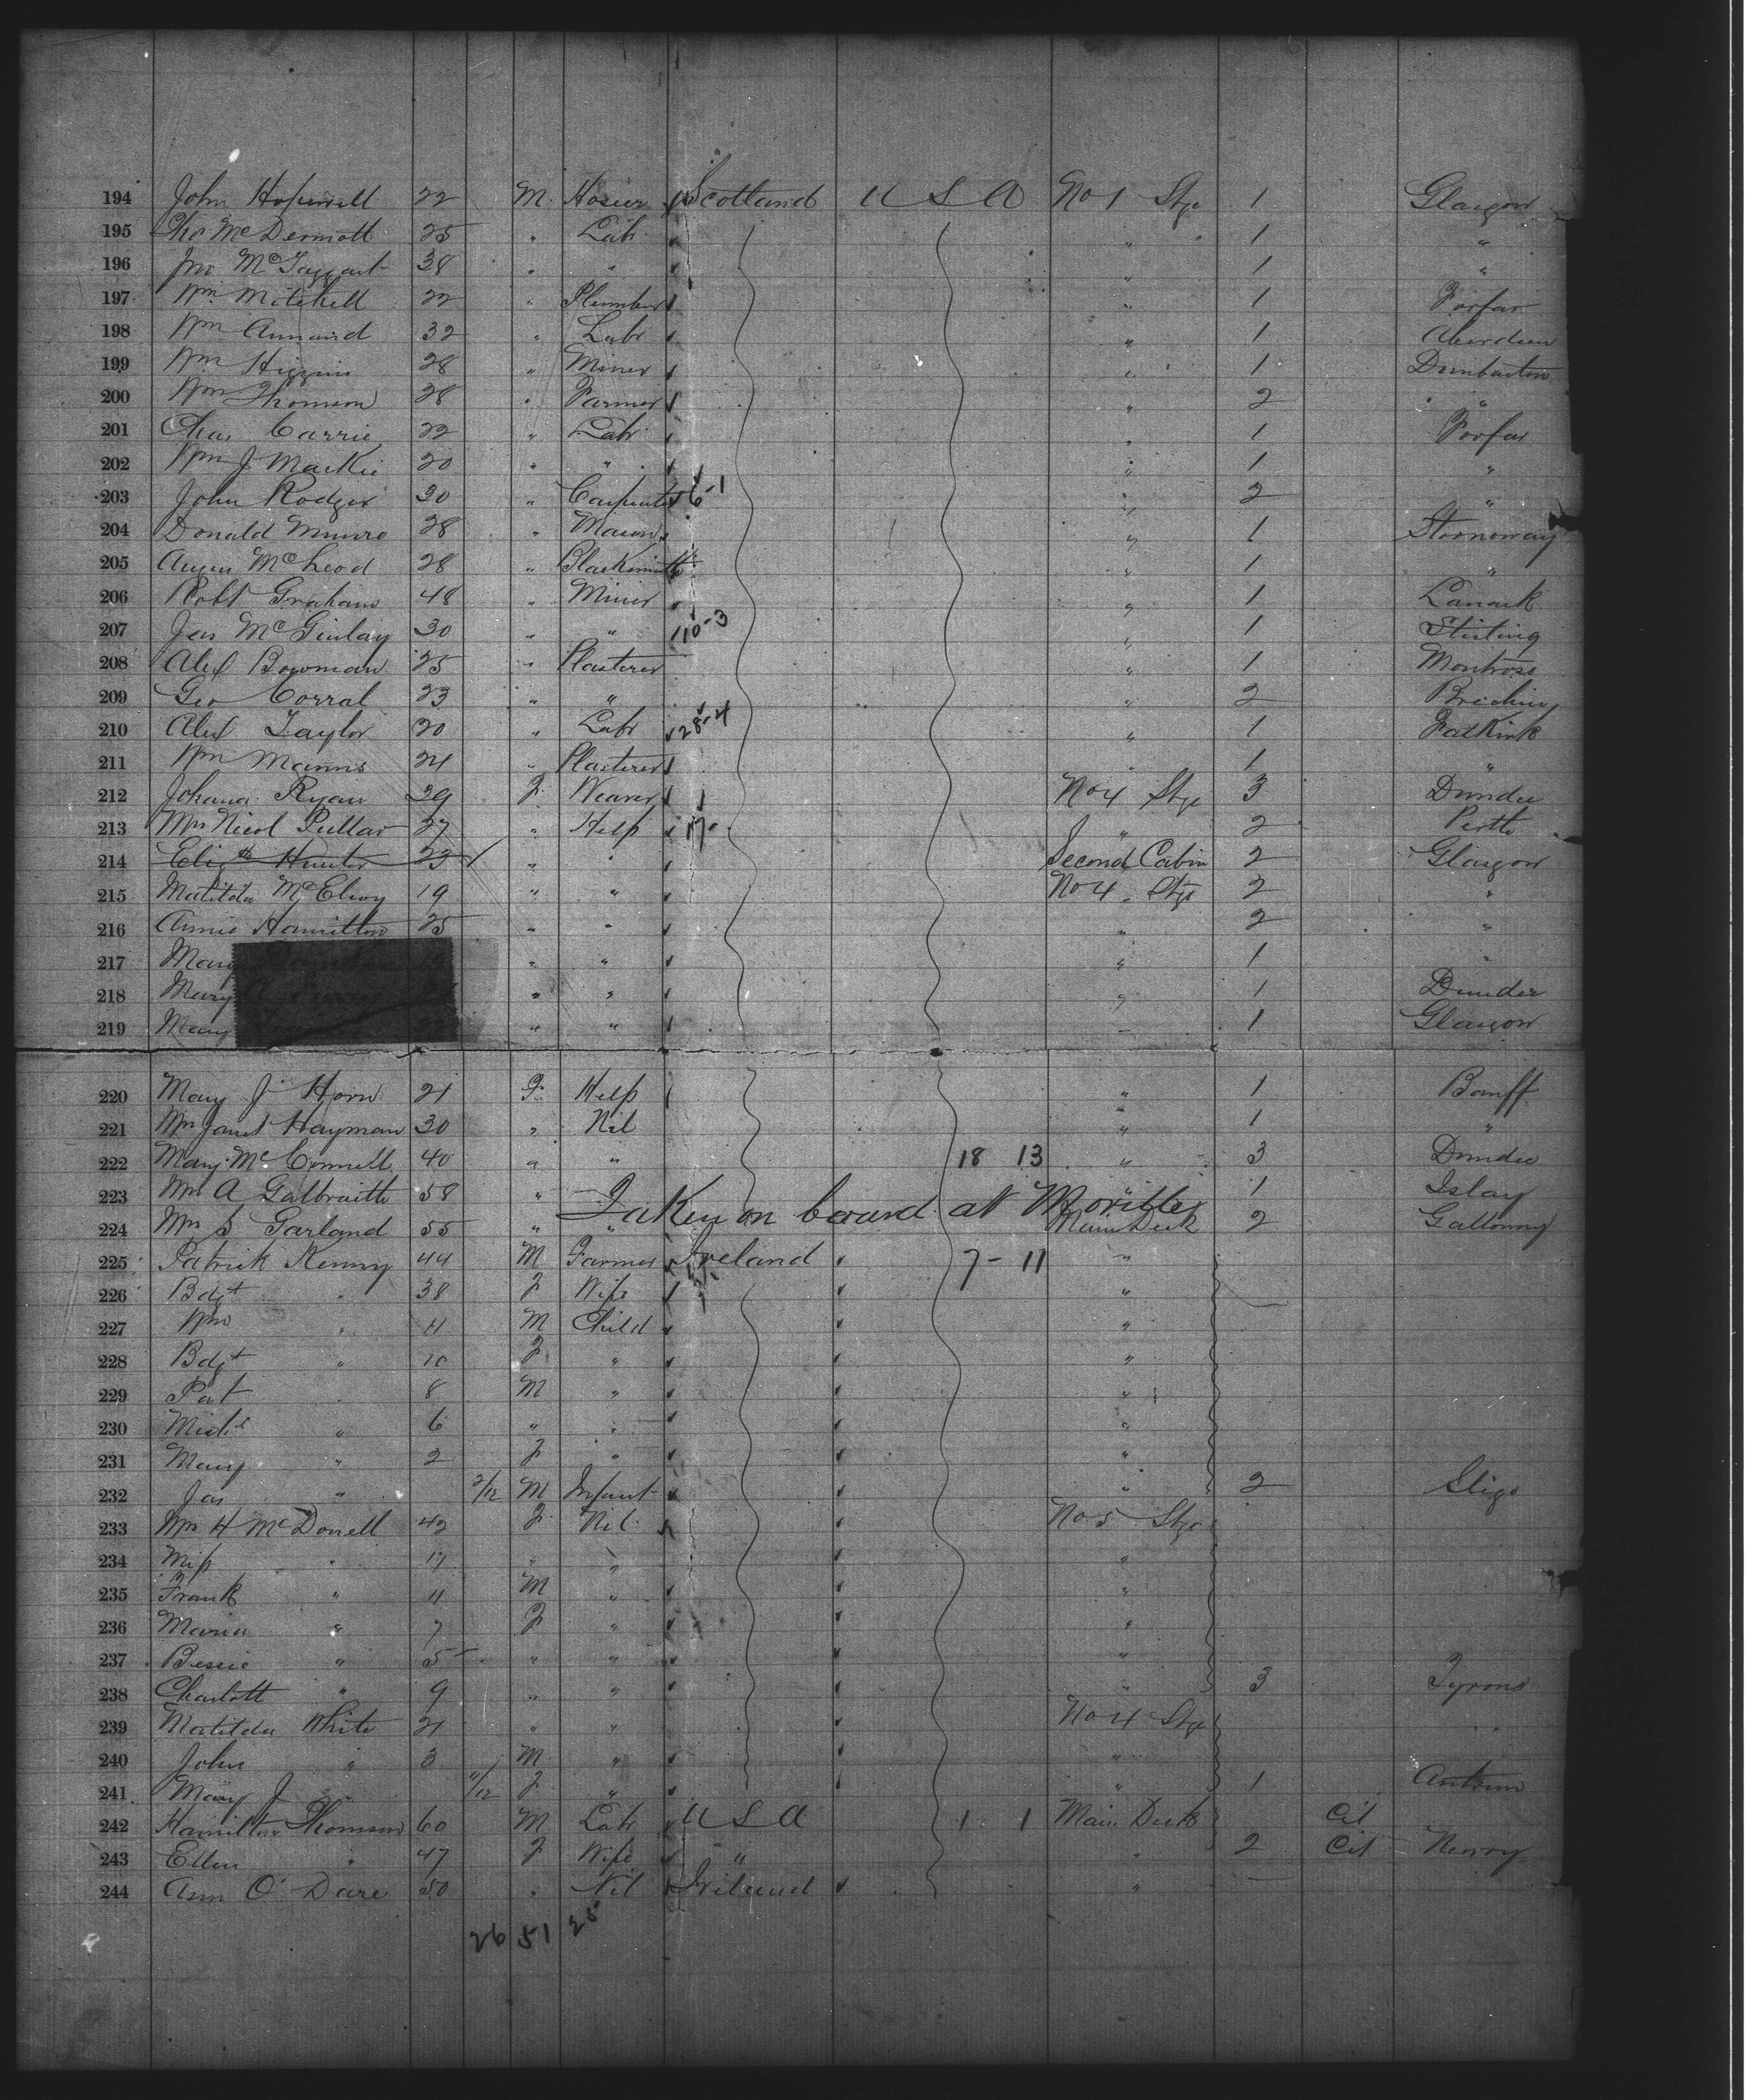 194 John Hopewell 22 M Hosier Scotland U S A No 1 Stge 1 Glasgow
195 Thos McDermott 25 " Labr " 1 "
196 Jno McTaggart 38 " " " 1 "
197 Wm Mitchell 22 " Plumber " 1 Forfar
198 Wm Annand 32 " Labr " 1 Aberdeen
199 Wm Higgins 28 " Miner " 1 Dumbarton
200 Wm Thomson 28 " Farmer " 2 "
201 Chas Carrie 22 " Labr " 1 Forfar
202 Wm J Mackie 20 " " " 1 "
203 John Rodger 30 " Carpenter 6-1 " 2 "
204 Donald Munro 28 " Mason " 1 Stornoway
205 Angus McLeod 28 " Blacksmith " 1 "
206 Robt Graham 48 " Miner " 1 Lanark
207 Jas McGinlay 30 " " 10-3 " 1 Stirling
208 Alex Bowman 25 " Plasterer " 1 Montrose
209 Geo Corral 23 " " " 2 Brechin
210 Alex Taylor 20 " Labr 28-4 " 1 Falkirk
211 Wm Manns 24 " Plasterer " 1 "
212 Johana Ryan 39 F Weaver No 4 Stge 3 Dundee
213 Mrs Nicol Pullar 27 " Help 17- " 2 Perth
214 Elizth Hunter 23 " " Second Cabin 2 Glasgow
215 Matilda McElroy 19 " " No 4 Stge 2 "
216 Annie Hamilton 25 " " " 2 "
217 Mary " " " 1 "
218 Mary " " " 1 Dundee
219 Mary " " " 1 Glasgow
220 Mary J Horn 21 F Help " 1 Banff
221 Mrs Janet Hayman 30 " Nil " 1 "
222 Mary McConnell 40 " " 18 13 " 3 Dundee
223 Mrs A Galbraith 58 " " 1 Islay
Taken on board at Moville
224 Mrs S Garland 55 " " Main Deck 2 Galloway
225 Patrick Kenny 44 M Farmer Ireland 7-11 "
226 Bdgt " 38 F Wife "
227 Wm " 11 M Child "
228 Bdgt " 10 F " "
229 Pat " 8 M " "
230 Michl " 6 " " "
231 Mary " 2 F " "
232 Jas " 2/12 M Infant " 2 Sligo
233 Mrs H McDonell 42 F Nil No 5 Stge
234 Miss " 17 " " "
235 Frank " 11 M " "
236 Maria " 7 F " "
237 Bessie " 5 " " "
238 Charlott " 9 " " " 3 Tyrone
239 Matilda White 21 " " No 4 Stge
240 John " 3 M " "
241 Mary J " 11/12 F " " 1 Antrim
242 Hamilton Thomson 60 M Labr U S A 1 1 Main Deck Cit
243 Ellen " 47 F Wife " " 2 Cit Newry
244 Ann O'Dare 50 " Nil Ireland "
26 51 25